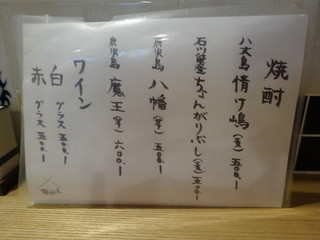 焼酎
八丈島 情け嶋(麦)五〇〇ー
石川 ちょんがりぶし(麦)五〇〇ー
鹿児島 八幡(芋)五〇〇ー
鹿児島 魔王(芋)六〇〇ー
ワイン
白 グラス 五〇〇ー
赤 グラス 五〇〇ー